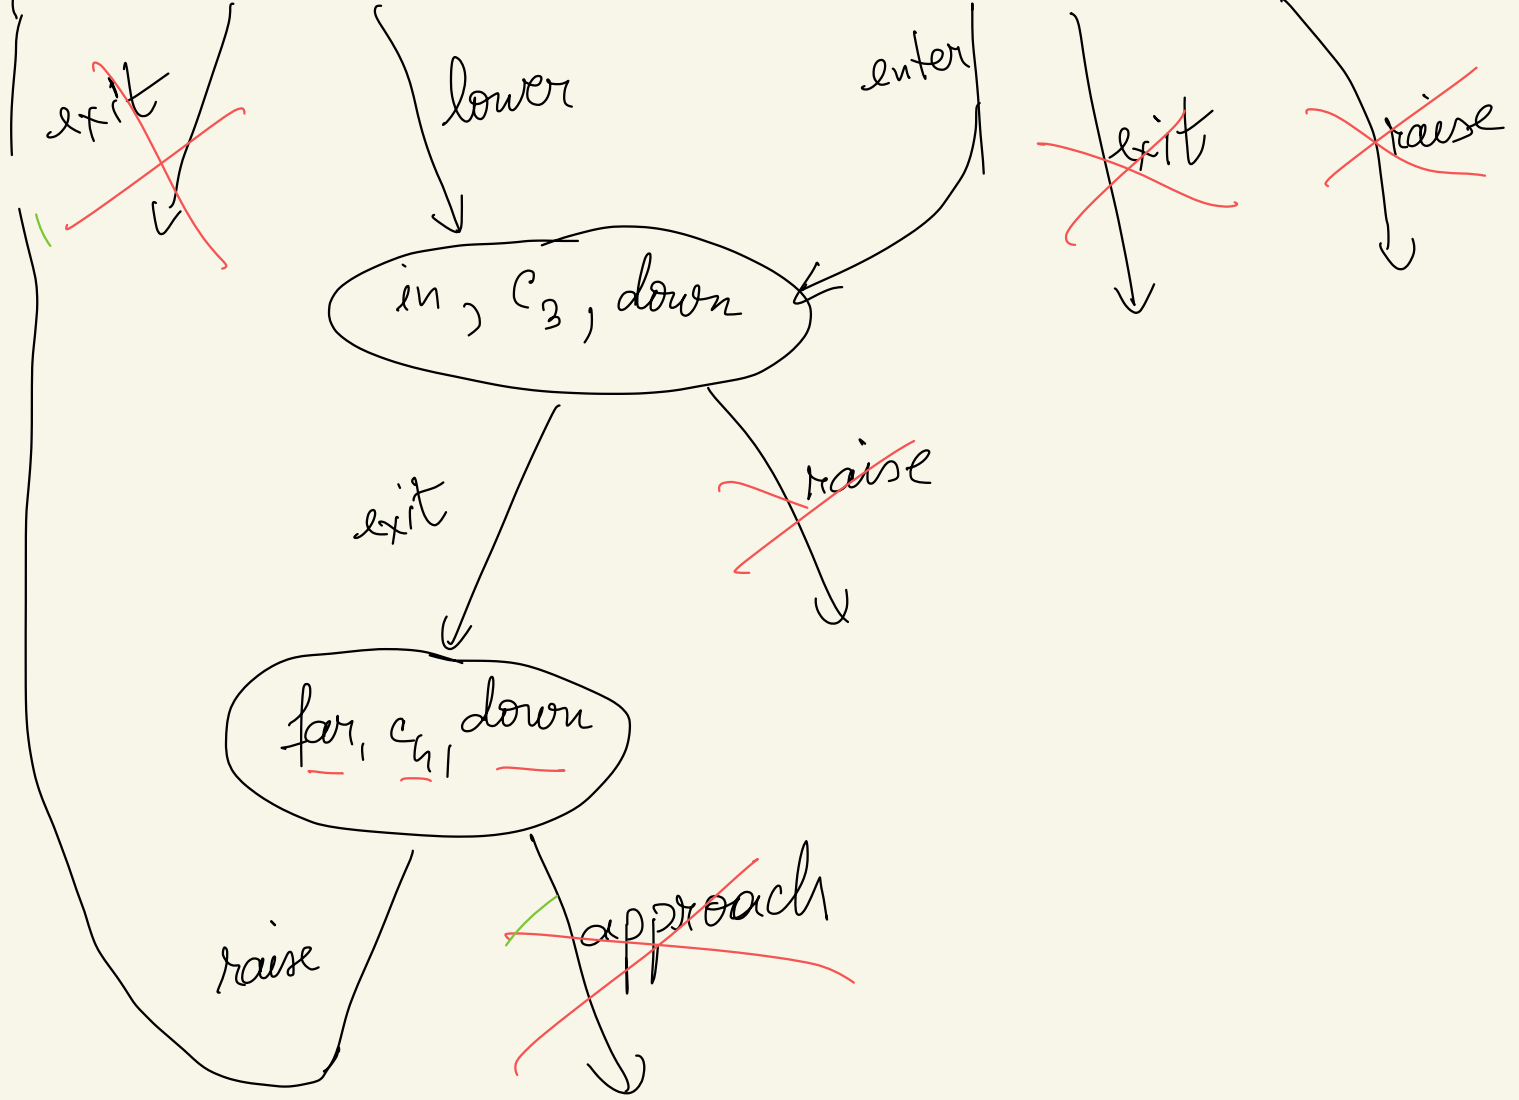 exit
lower
enter
exit
raise
in, C3, down
exit
raise
far, c4, down
raise
approach